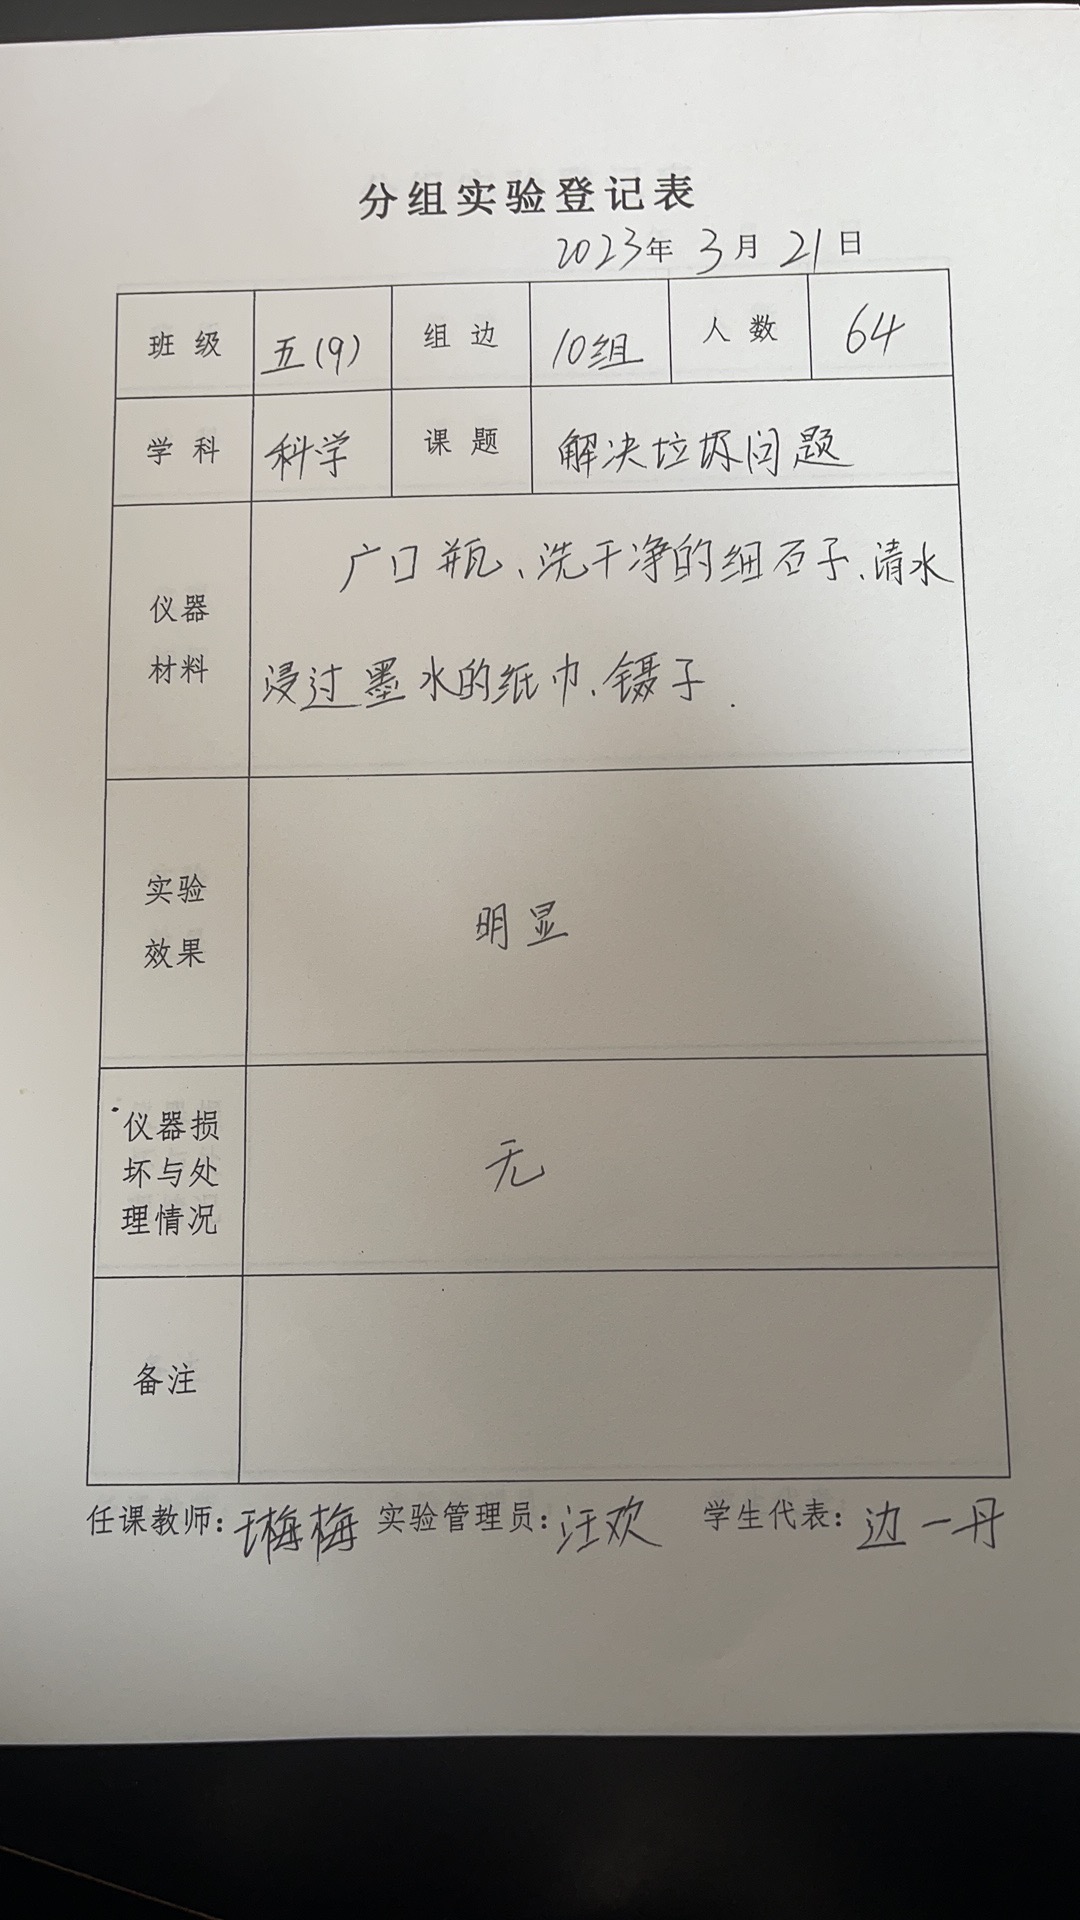 分组实验登记表
2023年 3月 21日
班级 五(9) 组边 10组 人数 64
学科 科学 课题 解决垃圾问题
仪器材料
广口瓶、洗干净的细石子、清水
浸过墨水的纸巾、镊子.
实验效果 明显
仪器损
坏与处
理情况
无
备注
任课教师: 王梅梅 实验管理员: 汪欢 学生代表: 边一丹